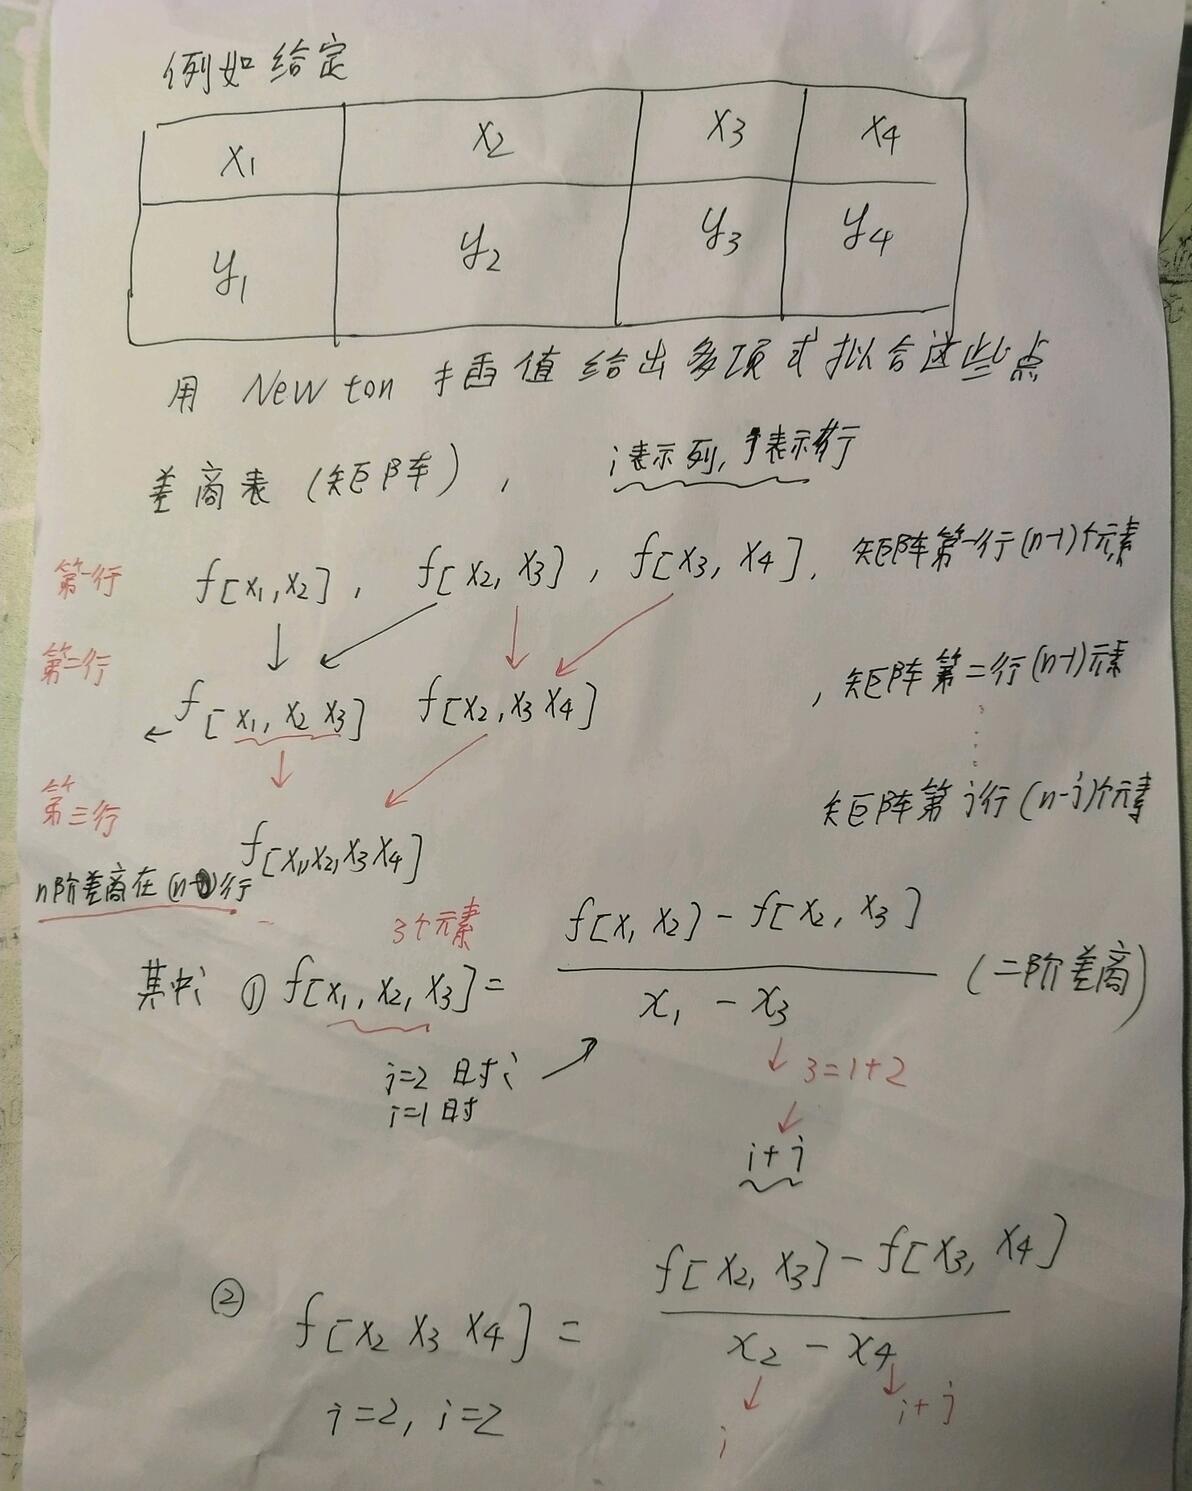 例如给定
x1 x2 x3 x4
y1 y2 y3 y4
用 Newton 插值给出多项式拟合这些点
差商表(矩阵), i表示列, j表示行
第一行 f[x1,x2], f[x2,x3], f[x3,x4], 矩阵第一行(n-1)个元素
第二行 f[x1,x2 x3] f[x2,x3 x4] , 矩阵第二行(n-1)元素
第三行 f[x1,x2,x3 x4] 矩阵第j行(n-j)个元素
n阶差商在 行
3个元素
其中: ① f[x1,x2,x3] = f[x1 x2] - f[x2,x3] / x1 - x3 (二阶差商)
j=2时; 3=1+2
i=1时
i+j
② f[x2 x3 x4] = f[x2,x3] - f[x3,x4] / x2 - x4
i i+j
j=2, i=2